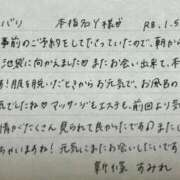 バリ 本指名Y様♂ R8.1.5
事前のご予約をして下さっていたので、朝から
池袋に向かえました♂またお会い出来て、本
！服を脱いだときからお元気で、お風呂の
気でしたね♡マッサージもエステも、前回より気
情がたくさん見られて良かったです♂またし
ちゃいますね！元気にまたお会いしたいです♡
新塚 すみれ